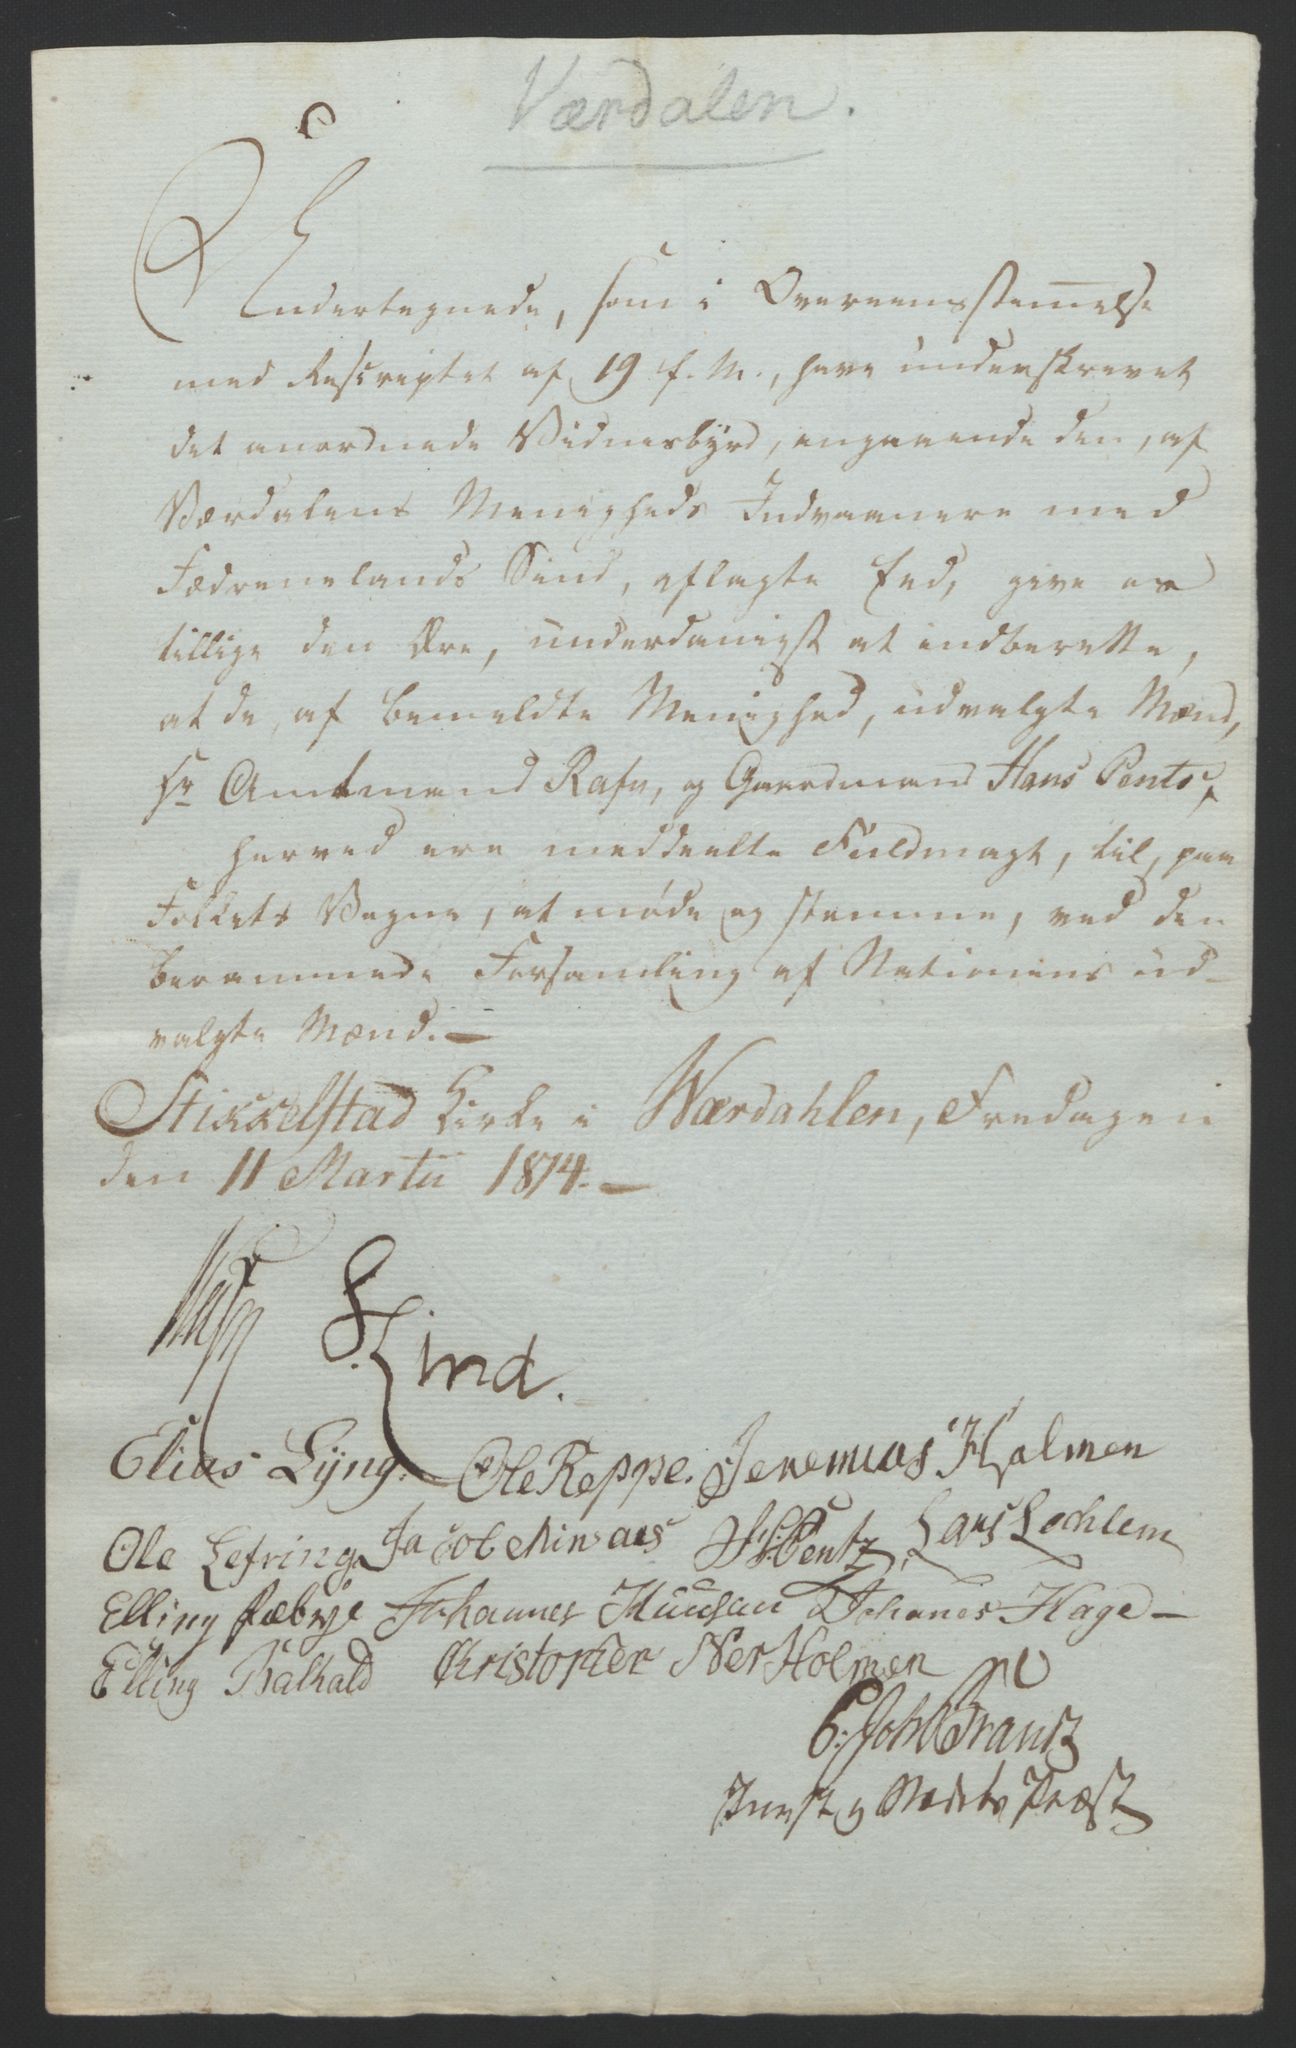 Værdalen.
Undertegnede, som i Overeensstemmelse
med Rescriptet af 19 f. M., have underskrevet
det anordnede Vidnesbyrd, angaaende den, af
Værdalens Menigheds Indvaanere med
Fædrenelands Sind, aflagte Eed, give os
tillige den Ære, underdanigst at indberette,
at de, af bemeldte Menighed, udvalgte Mænd,
Hr Amtmand Rafn, og Gaardmand Hans Pents,
herved ere meddeelte Fuldmagt, til, paa
Folkets Vegne, at møde og stemme, ved den
berammede Forsamling af Nationens ud-
valgte Mænd. —
Stikkelstad Kirke i Wærdahlen, Fredagen
den 11 Martii 1814. —
Rafn Lind.
Elias Lÿng. Ole Reppe. Jeremias Holmen
Ole Lefring Jacob Minsaas H: Pentz, Lars Lechlem
Elling Fæbye Johannes Huusan Johanes Hage —
Elling Balhald Christopher Ner Holmen
C: Joh Brantz
Provst og Præst